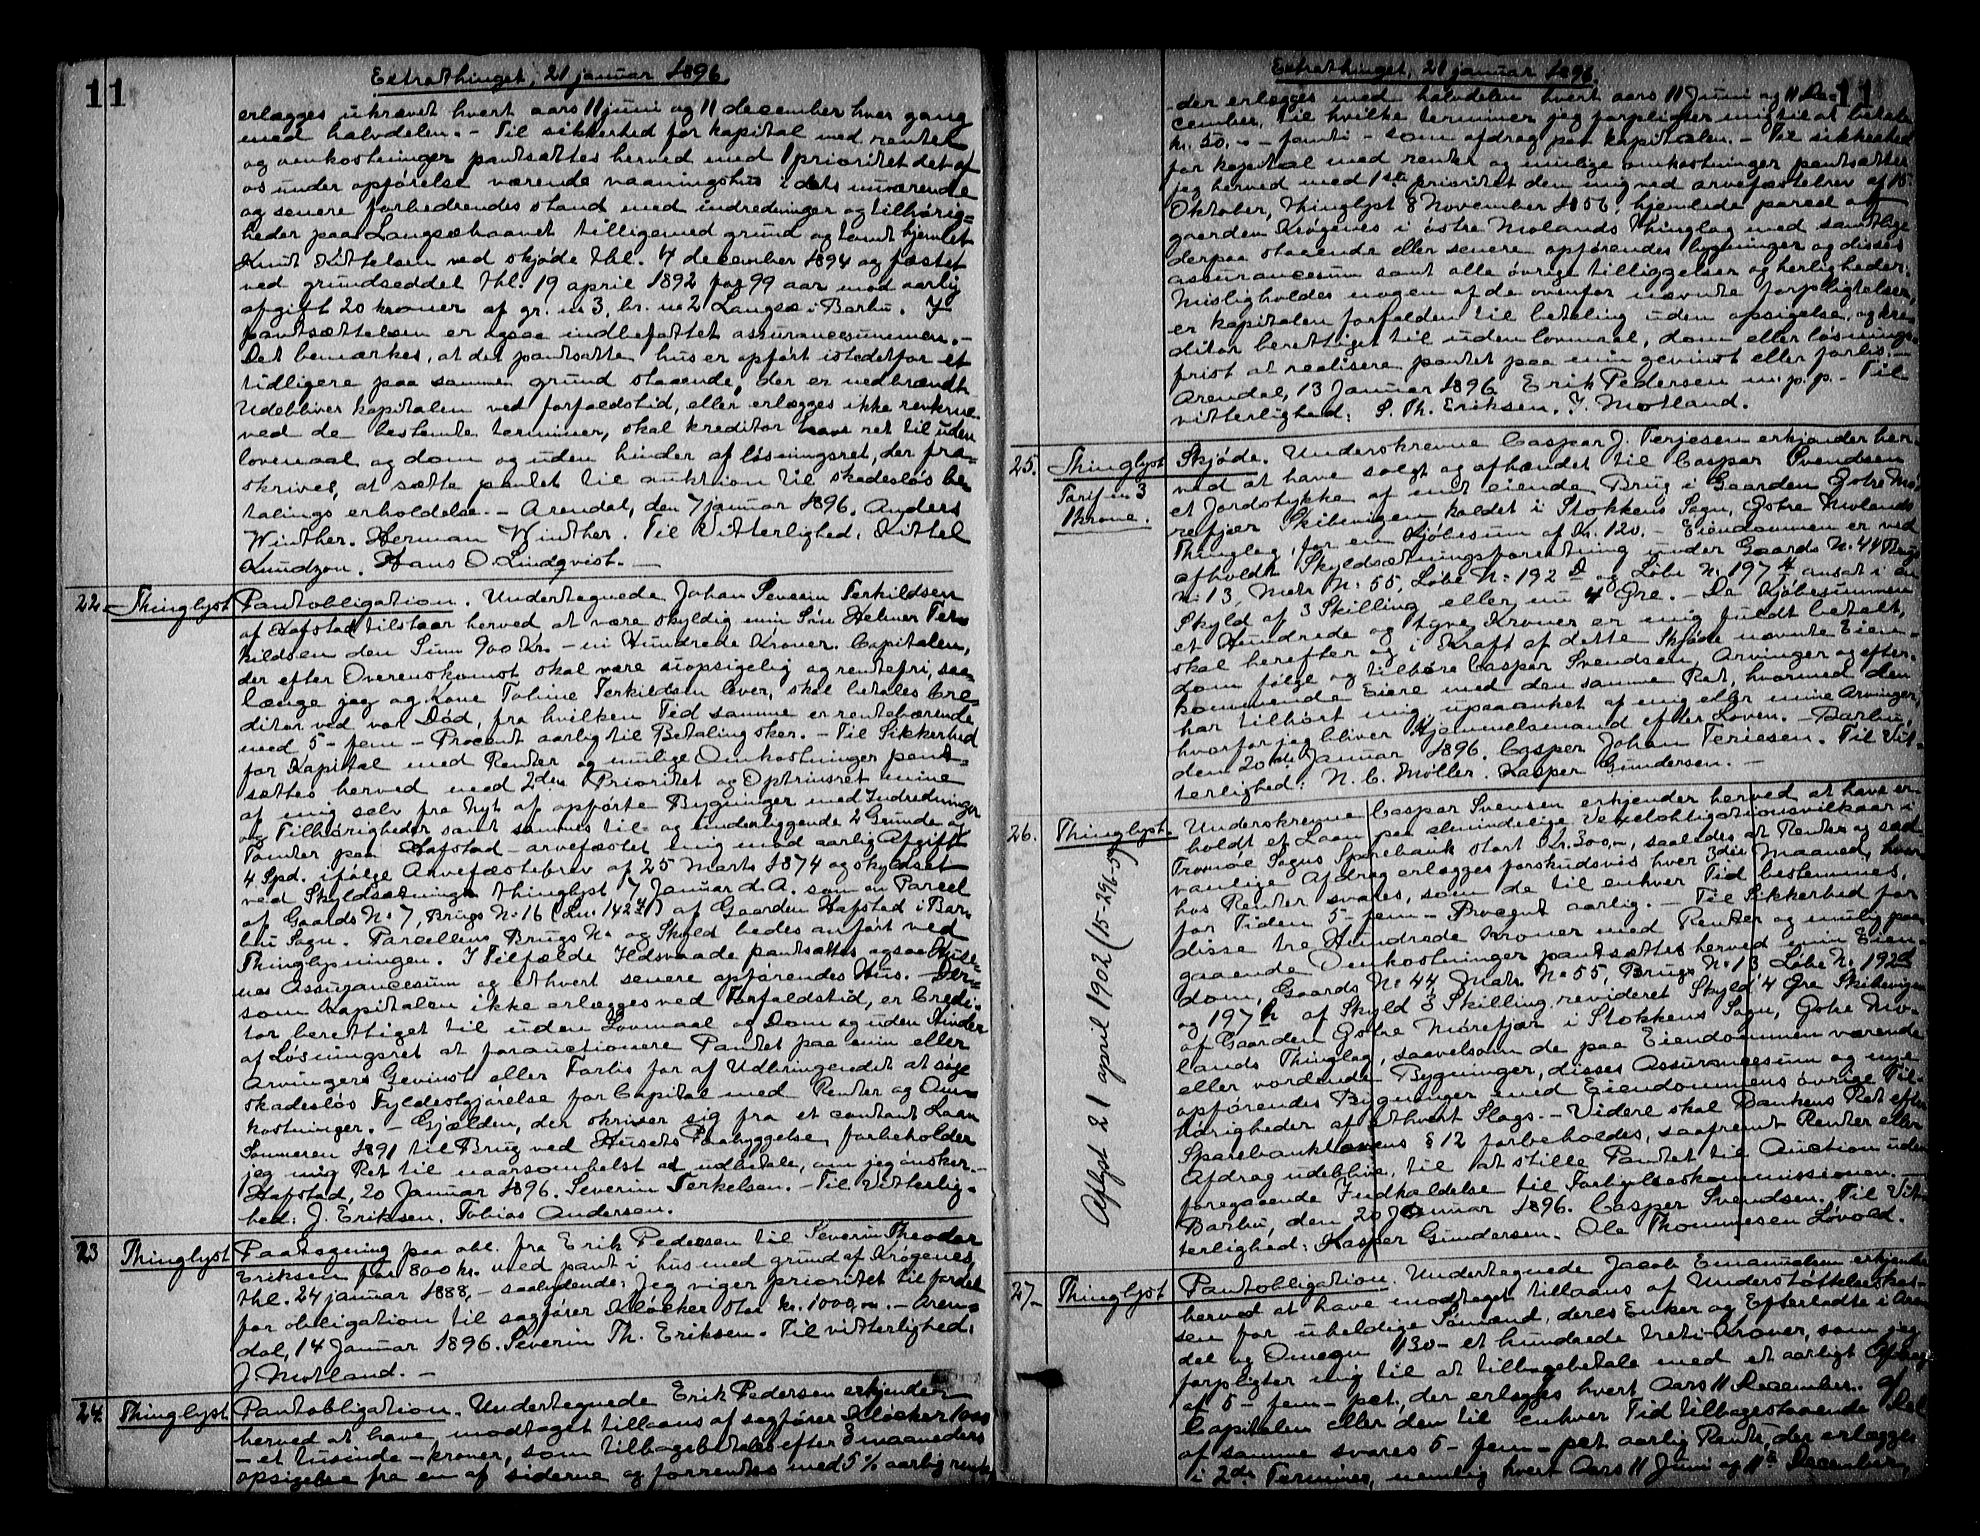 11
Extrathinget, 21 januar 1896.
erlægges ukrævet hvert aars 11 juni og 11 december hver gang
med halvdelen. - Til sikkerhed for kapital med renter
og omkostninger pantsættes herved med 1 prioritet det af
os under opførelse værende vaaningshus i dets nuværende
og senere forbedrendes stand med indredninger og tilhørig-
heder paa Langsæhaavet tilligemed grund og tomt hjemlet
Knut Kittelsen ved skjøde thl. 4 december 1894 og fæstet
ved grundseddel thl. 19 april 1892 paa 99 aar mod aarlig
afgift 20 kroner af gr. no 3, br. no 2 Langsæ i Barbu. I
pantsættelsen er ogsaa indbefattet assurancesummen. -
Det bemærkes, at det pantsatte hus er opført istedetfor et
tidligere paa samme grund staaende, der er nedbrændt
Udebliver kapitalen ved forfaldstid, eller erlægges ikke renterne
ved de bestemte terminer, skal kreditor have ret til uden
lovmaal og dom og uden hinder af løsningsret, der fra-
skrives, at sætte pantet til auktion til skadesløs be-
talings erholdelse. - Arendal, den 7 januar 1896. Anders
Winther. Herman Winther. Til Vitterlighed: Kittel
Knudzon. Hans O. Lindqvist. -
22. Thinglyst Pantobligation. Undertegnede Johan Severin Terkildsen
af Hafstad tilstaar herved at være skyldig min Søn Helmer Ter-
kildsen den Sum 900 Kr. - ni Hundrede Kroner. Capitalen,
der efter Overenskomst skal være uopsigelig og rentefri, saa-
længe jeg og Kone Tobine Terkildsen lever, skal betales Cre-
ditor ved vor Død, fra hvilken Tid samme er rentebærende
med 5 - fem - Procent aarlig til Betaling sker. - Til Sikkerhed
for Kapital med Renter og mulige Omkostninger pant-
sættes herved med 2den Prioritet og Optrinsret mine
af mig selv fra Nyt af opførte Bygninger med Indredninger
og Tilhørigheder samt sammes til- og underliggende 2 Grunde og
Tomter paa Hafstad - arvefæstet mig mod aarlig Afgift
4 Spd. ifølge Arvefæstebrev af 25 Marts 1874 og skyldsat
ved Skyldsætning thinglyst 7 Januar d. A. som en Parcel
af Gaards No 7, Brugs No 16 (Lno 142) af Gaarden Hafstad i Bar-
bu Sogn. Parcellens Brugs No og Skyld bedes anført ved
Thinglysningen. I Tilfælde Ildsvaade pantsættes ogsaa Huse-
nes Assurancesum og ethvert senere opførendes Hus. - Der-
som Kapitalen ikke erlægges ved Forfaldstid, er Credi-
tor berettiget til uden Lovmaal og Dom og uden Hinder
af Løsningsret at forauctionere Pantet paa min eller
Arvingers Gevinst eller Forlis for af Udbringendet at søge
skadesløs Fyldestgjørelse for Capital med Renter og Om-
kostninger. - Gjælden, der skriver sig fra et contant Laan
Sommeren 1891 til Brug ved Husets Paabyggelse, forbeholder
jeg mig Ret til naarsomhelst at udbetale, om jeg ønsker. -
Hafstad, 20 Januar 1896. Severin Terkelsen. - Til Vitterlig-
hed: J. Eriksen. Tobias Andersen.
23 Thinglyst Paategning paa obl. fra Erik Pedersen til Severin Theodor
Eriksen for 800 kr. med pant i hus med grund af Krøgenes,
thl. 24 januar 1888, - saalydende: Jeg viger prioritet til fordel
for obligation til sagfører Kløcker stor kr. 1000,00. - Aren-
dal, 14 Januar 1896. Severin Th. Eriksen. Til vitterlighed:
J. Motland. -
24. Thinglyst Pantobligation. Undertegnede Erik Pedersen erkjender
herved at have modtaget tillaans af sagfører Kløcker 1000
- et tusinde - kroner, som tilbagebetales efter 3 maaneders
opsigelse fra en af siderne og forrentes med 5 % aarlig rente
Extrathinget, 21 januar 1896.
11
der erlægges med halvdelen hvert aars 11 Juni og 11 De-
cember, til hvilke terminer jeg forpligter mig til at betale
kr. 50,00 - femti - som afdrag paa kapitalen. - Til sikkerhed
for kapital med renter og mulige omkostninger pantsætter
jeg herved med 1ste prioritet den mig ved arvefæstebrev af 15
Oktober, thinglyst 8 November 1856, hjemlede parcel af
gaarden Krøgenes i østre Molands Thinglag med samtlige
derpaa staaende eller senere opførendes bygninger og disses
assurancesum samt alle øvrige tilliggelser og herligheder.
Misligholdes nogen af de ovenfor nævnte forpligtelser,
er kapitalen forfalden til betaling uden opsigelse, og kre-
ditor berettiget til uden lovmaal, dom eller løsnings-
frist at realisere pantet paa min gevinst eller forlis. -
Arendal, 13 Januar 1896. Erik Pedersen m. p. p. - Til
vitterlighed: S. Th. Eriksen. J. Motland.
25. Thinglyst Skjøde. Underskrevne Caspar J. Terjesen erkjender her-
Tarif no 3
1 krone.
ved at have solgt og afhændet til Caspar Svendsen
et Jordstykke af mit eiende Brug i Gaarden Østre Mø-
refjær Skibevigen kaldet i Stokkens Sogn, Østre Molands
Thinglag, for en Kjøbesum af Kr. 120. - Eiendommen er ved
afholdt Skyldsætningsforretning under Gaards No. 44 Brugs
No 13, Matr No 55, Løbe No 192 d og Løbe No 197 h ansat i en
Skyld af 3 Skilling eller nu 4 Øre. - Da Kjøbesummen
et Hundrede og tyve Kroner er mig fuldt betalt,
skal herefter og i Kraft af dette Skjøde nævnte Eien-
dom følge og tilhøre Caspar Svendsen, Arvinger og efter-
kommende Eiere med den samme Ret, hvormed den
har tilhørt mig upaaanket af mig eller mine Arvinger,
hvorfor jeg bliver Hjemmelsmand efter Loven. - Barbu,
den 20de Januar 1896. Casper Johan Teriesen. Til Vit-
terlighed: N. C. Møller. Kasper Gundersen. -
26. Thinglyst. Underskrevne Caspar Svensen erkjender herved at have er-
holdt et Laan paa almindelige Vexelobligationsvilkaar i
Tromøe Sogns Sparebank stort Kr. 300,00, saaledes at Renter og sæd-
vanlige Afdrag erlægges forskudsvis hver 3die Maaned, hvor-
hos Renter svares, som de til enhver Tid bestemmes,
for Tiden 5 - fem - Procent aarlig. - Til Sikkerhed for
disse tre Hundrede Kroner med Renter og mulig paa-
gaaende Omkostninger pantsættes herved min Eien-
dom, Gaards No 44 Matr. No 55, Brugs No 13 Løbe No 192 d
og 197 h af Skyld 3 Skilling, revideret Skyld 4 Øre Skibevigen
af Gaarden Østre Mørefjær i Stokkens Sogn, Østre Mo-
lands Thinglag, saavelsom de paa Eiendommen værende
eller vordende Bygninger, disses Assurancesum og nye
opførendes Bygninger med Eiendommens øvrige Til-
hørigheder af ethvert Slags. - Videre skal Bankens Ret efter
Sparebanklovens § 12 forbeholdes, saafremt Renter eller
Afdrag udeblive, til at stille Pantet til Auction uden
foregaaende Indkaldelse til Forligelseskommissionen. -
Barbu, den 20 Januar 1896. Casper Svendsen. Til Vit-
terlighed: Kasper Gundersen. Ole Thommesen Løvold.
Aflyst 21 april 1902 (15-296-57)
27. Thinglyst Pantobligation. Undertegnede Jacob Emanuelsen erkjender
herved at have modtaget tillaans af Understøttelseskas-
sen for uheldige Sømænd, deres Enker og Efterladte i Aren-
del og Omegn 130 - et hundrede treti - Kroner, som jeg
forpligter mig til at tilbagebetale med et aarligt Afdrag
af 5 - fem - pct., der erlægges hvert Aars 11 December. Af
Capitalen eller den til enhver Tid tilbagestaaende Del
af samme svares 5 - fem - pct aarlig Rente, der erlægges
i 2de Terminer, nemlig hvert Aars 11 Juni og 11te December,